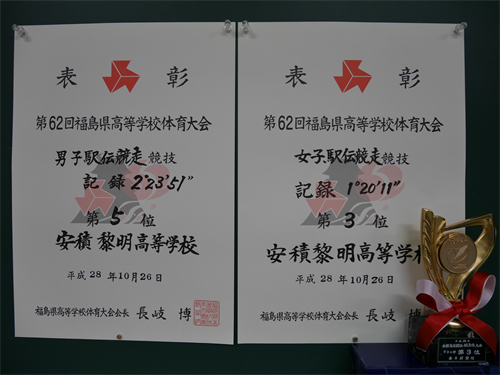 表彰
第62回福島県高等学校体育大会
男子駅伝競走競技
記録 2°23'51"
第5位
安積黎明高等学校
平成28年10月26日
福島県高等学校体育大会会長 長岐 博
表彰
第62回福島県高等学校体育大会
女子駅伝競走競技
記録 1°20'11"
第3位
安積黎明高等学校
平成28年10月26日
福島県高等学校体育大会会長 長岐 博
第3位